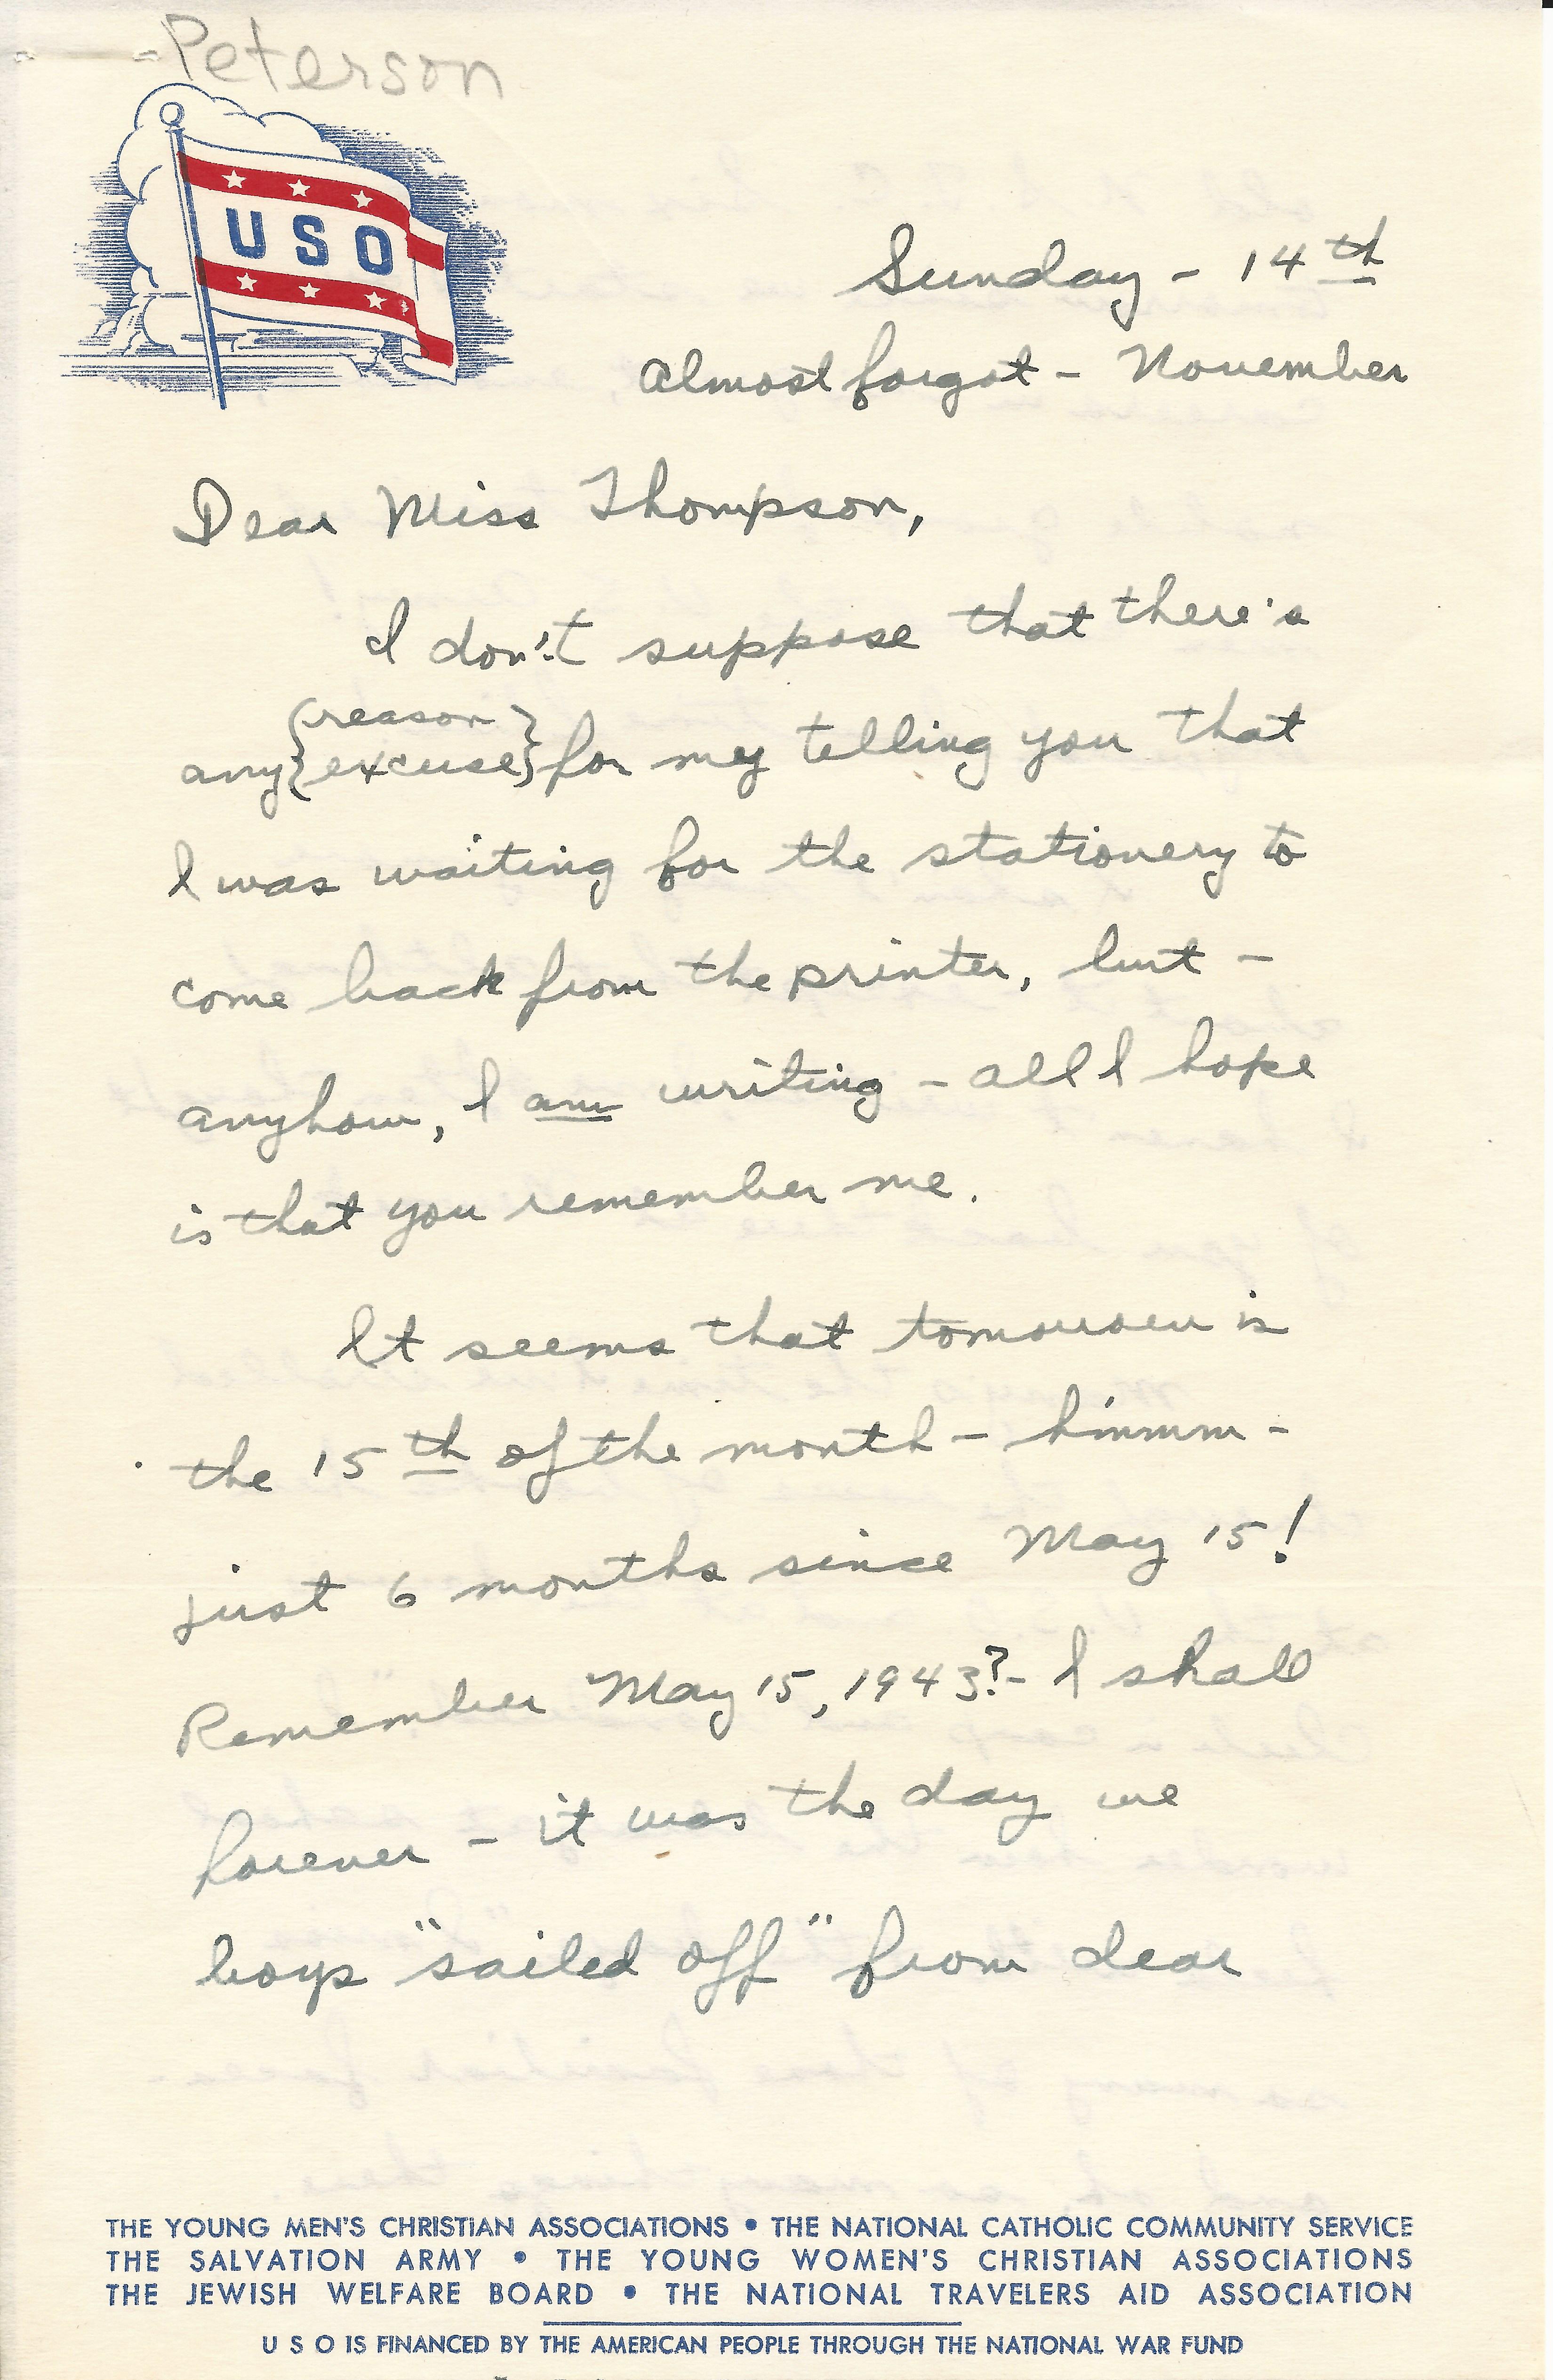 Peterson
USO
Sunday - 14th
Almost forgot - November
Dear Miss Thompson,
I don't suppose that there's
any {reason} {excuse} for my telling you that
I was waiting for the stationery to
come back from the printer, but -
anyhow, I am writing - all I hope
is that you remember me.
It seems that tomorrow is
the 15th of the month - hmmm -
just 6 months since May 15!
Remember May 15, 1943? - I shall
forever - it was the day we
boys "sailed off" from dear
THE YOUNG MEN'S CHRISTIAN ASSOCIATIONS • THE NATIONAL CATHOLIC COMMUNITY SERVICE
THE SALVATION ARMY • THE YOUNG WOMEN'S CHRISTIAN ASSOCIATIONS
THE JEWISH WELFARE BOARD • THE NATIONAL TRAVELERS AID ASSOCIATION
U S O IS FINANCED BY THE AMERICAN PEOPLE THROUGH THE NATIONAL WAR FUND